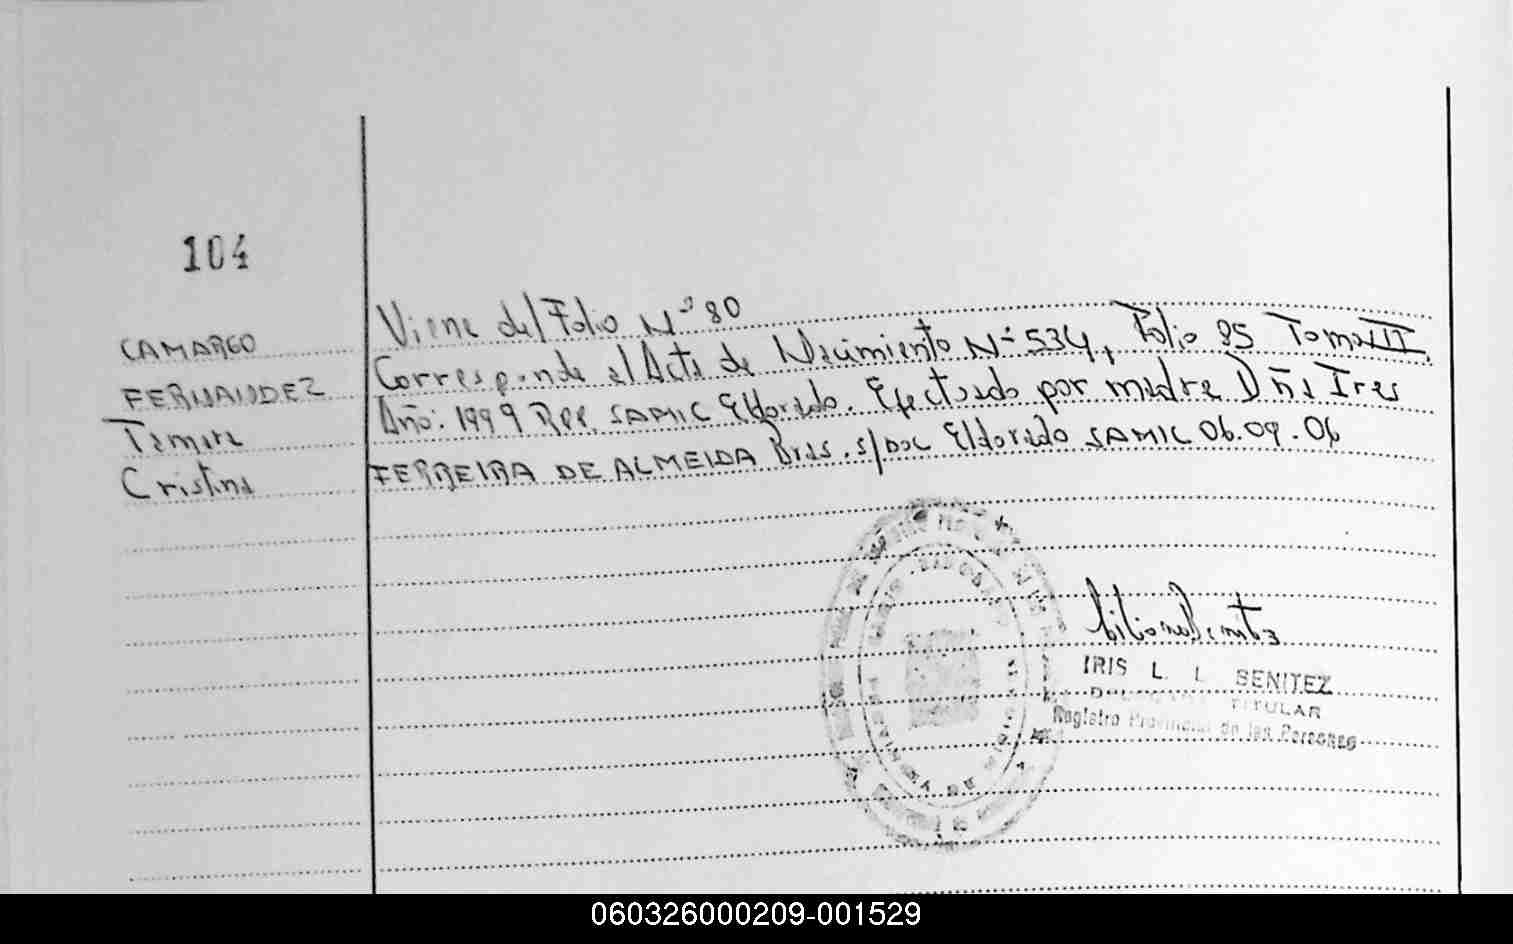 104
CAMARGO
FERNANDEZ
Tamara
Cristina
Viene del Folio Nº 80
Corresponde al Acta de Nacimiento Nº 534, Folio 95 Tomo III.
Año: 1999 Rpp. SAMIC Eldorado. Efectuado por madre Dña Ires
FERREIRA DE ALMEIDA Bras. s/Doc Eldorado SAMIC 06.09.06
IRIS L. L. BENITEZ
TITULAR
Registro Provincial de las Personas
060326000209-001529